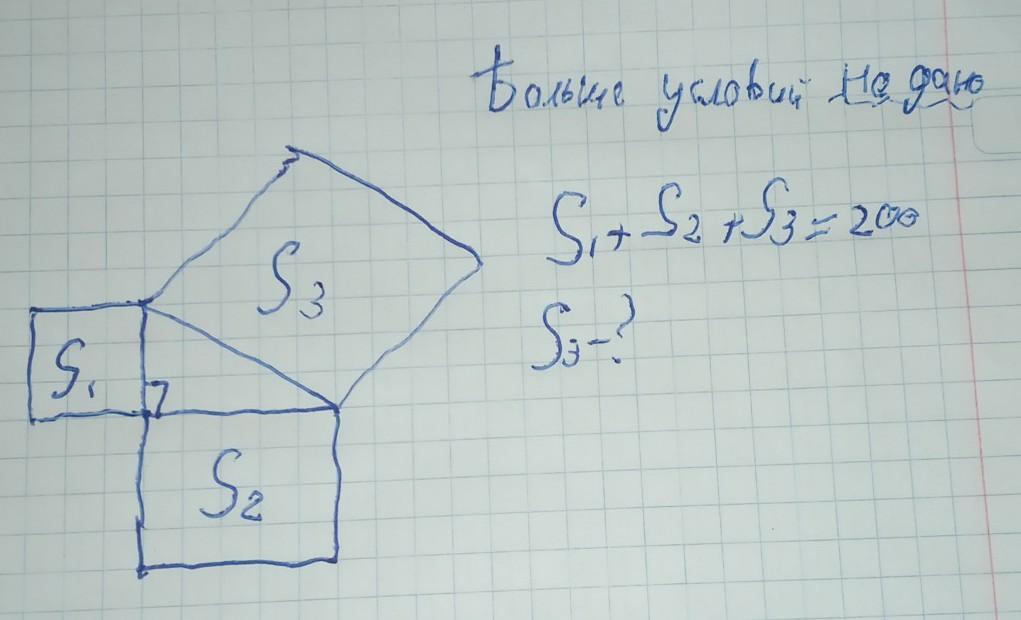 Больше условий не дано
S₁ + S₂ + S₃ = 200
S₃ - ?
S₃
S₁
S₂